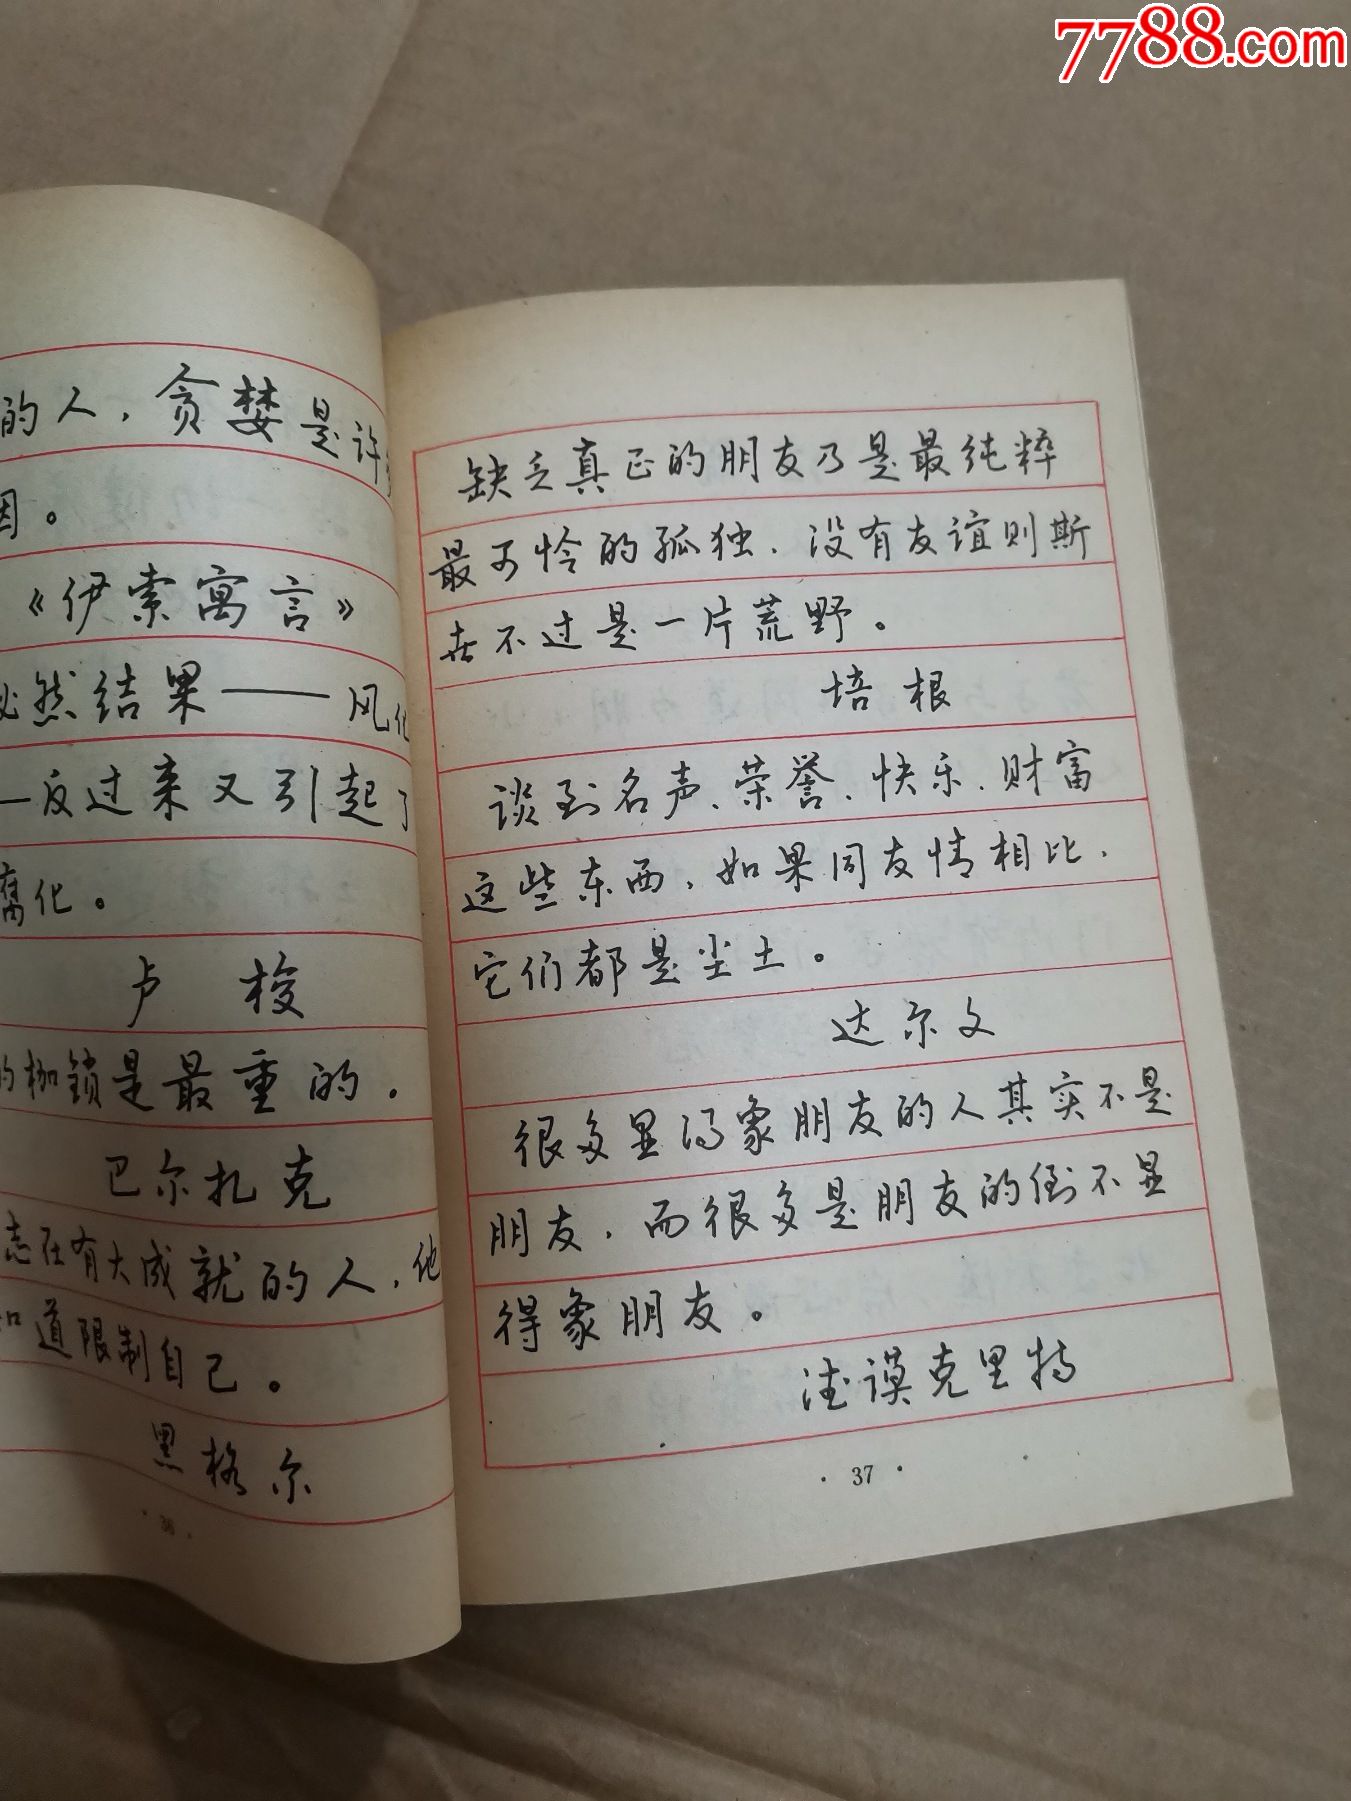 7788.com
的人，贪婪是许
因。
《伊索寓言》
必然结果——风化
—反过来又引起了
腐化。
卢 梭
的枷锁是最重的。
巴尔扎克
志在有大成就的人，他
知道限制自己。
黑格尔
·36·
缺乏真正的朋友乃是最纯粹
最可怜的孤独，没有友谊则斯
世不过是一片荒野。
培根
谈到名声、荣誉、快乐、财富
这些东西，如果同友情相比，
它们都是尘土。
达尔文
很多显得象朋友的人其实不是
朋友，而很多是朋友的倒不显
得象朋友。
德谟克里特
·37·